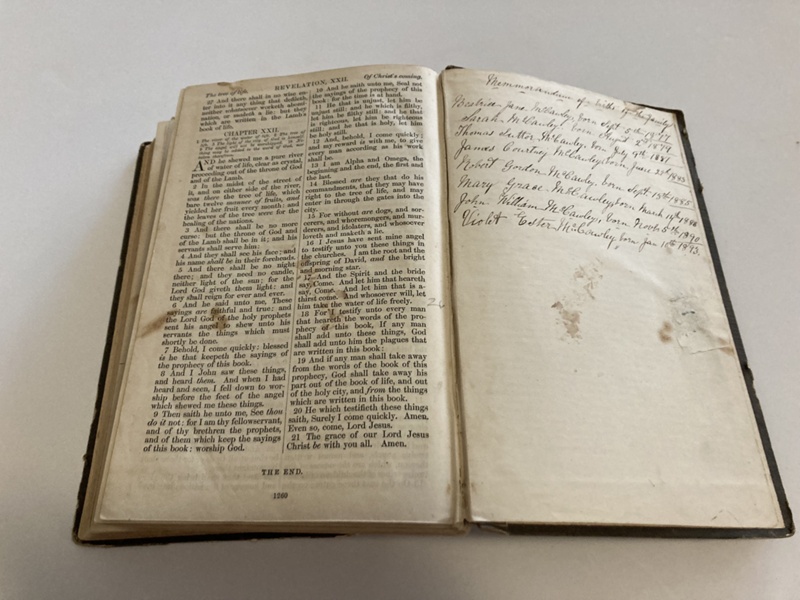 The tree of life. REVELATION, XXII. Of Christ's coming.
27 And there shall in no wise en-
ter into it any thing that defileth,
neither whatsoever worketh abomi-
nation, or maketh a lie: but they
which are written in the Lamb's
book of life.
CHAPTER XXII.
AND he shewed me a pure river
of water of life, clear as crystal,
proceeding out of the throne of God
and of the Lamb.
2 In the midst of the street of
it, and on either side of the river,
was there the tree of life, which
bare twelve manner of fruits, and
yielded her fruit every month: and
the leaves of the tree were for the
healing of the nations.
3 And there shall be no more
curse: but the throne of God and
of the Lamb shall be in it; and his
servants shall serve him:
4 And they shall see his face; and
his name shall be in their foreheads.
5 And there shall be no night
there; and they need no candle,
neither light of the sun; for the
Lord God giveth them light: and
they shall reign for ever and ever.
6 And he said unto me, These
sayings are faithful and true: and
the Lord God of the holy prophets
sent his angel to shew unto his
servants the things which must
shortly be done.
7 Behold, I come quickly: blessed
is he that keepeth the sayings of
the prophecy of this book.
8 And I John saw these things,
and heard them. And when I had
heard and seen, I fell down to wor-
ship before the feet of the angel
which shewed me these things.
9 Then saith he unto me, See thou
do it not: for I am thy fellowservant,
and of thy brethren the prophets,
and of them which keep the sayings
of this book: worship God.
10 And he saith unto me, Seal not
the sayings of the prophecy of this
book: for the time is at hand.
11 He that is unjust, let him be
unjust still: and he which is filthy,
let him be filthy still: and he that
is righteous, let him be righteous
still: and he that is holy, let him
be holy still.
12 And, behold, I come quickly;
and my reward is with me, to give
every man according as his work
shall be.
13 I am Alpha and Omega, the
beginning and the end, the first and
the last.
14 Blessed are they that do his
commandments, that they may have
right to the tree of life, and may
enter in through the gates into the
city.
15 For without are dogs, and sor-
cerers, and whoremongers, and mur-
derers, and idolaters, and whosoever
loveth and maketh a lie.
16 I Jesus have sent mine angel
to testify unto you these things in
the churches. I am the root and the
offspring of David, and the bright
and morning star.
17 And the Spirit and the bride
say, Come. And let him that heareth
say, Come. And let him that is a-
thirst come. And whosoever will, let
him take the water of life freely.
18 For I testify unto every man
that heareth the words of the pro-
phecy of this book, If any man
shall add unto these things, God
shall add unto him the plagues that
are written in this book:
19 And if any man shall take away
from the words of the book of this
prophecy, God shall take away his
part out of the book of life, and out
of the holy city, and from the things
which are written in this book.
20 He which testifieth these things
saith, Surely I come quickly. Amen.
Even so, come, Lord Jesus.
21 The grace of our Lord Jesus
Christ be with you all. Amen.
THE END.
1260
Memmorandum of births in the family
Beatrice Jane McCawley. born Sept. 5th 1877
Sarah McCawley. born August 2nd 1879
Thomas Sutter McCawley. born July 9th 1881
James Courtney McCawley born June 23rd 1883
Robert Gordon McCawley. born Sept. 13th 1885
Mary Grase McCawley born March 14th 1888
John William McCawley. born Novb 5th 1890
Violet Ester McCawley. born Jan 10th 1893